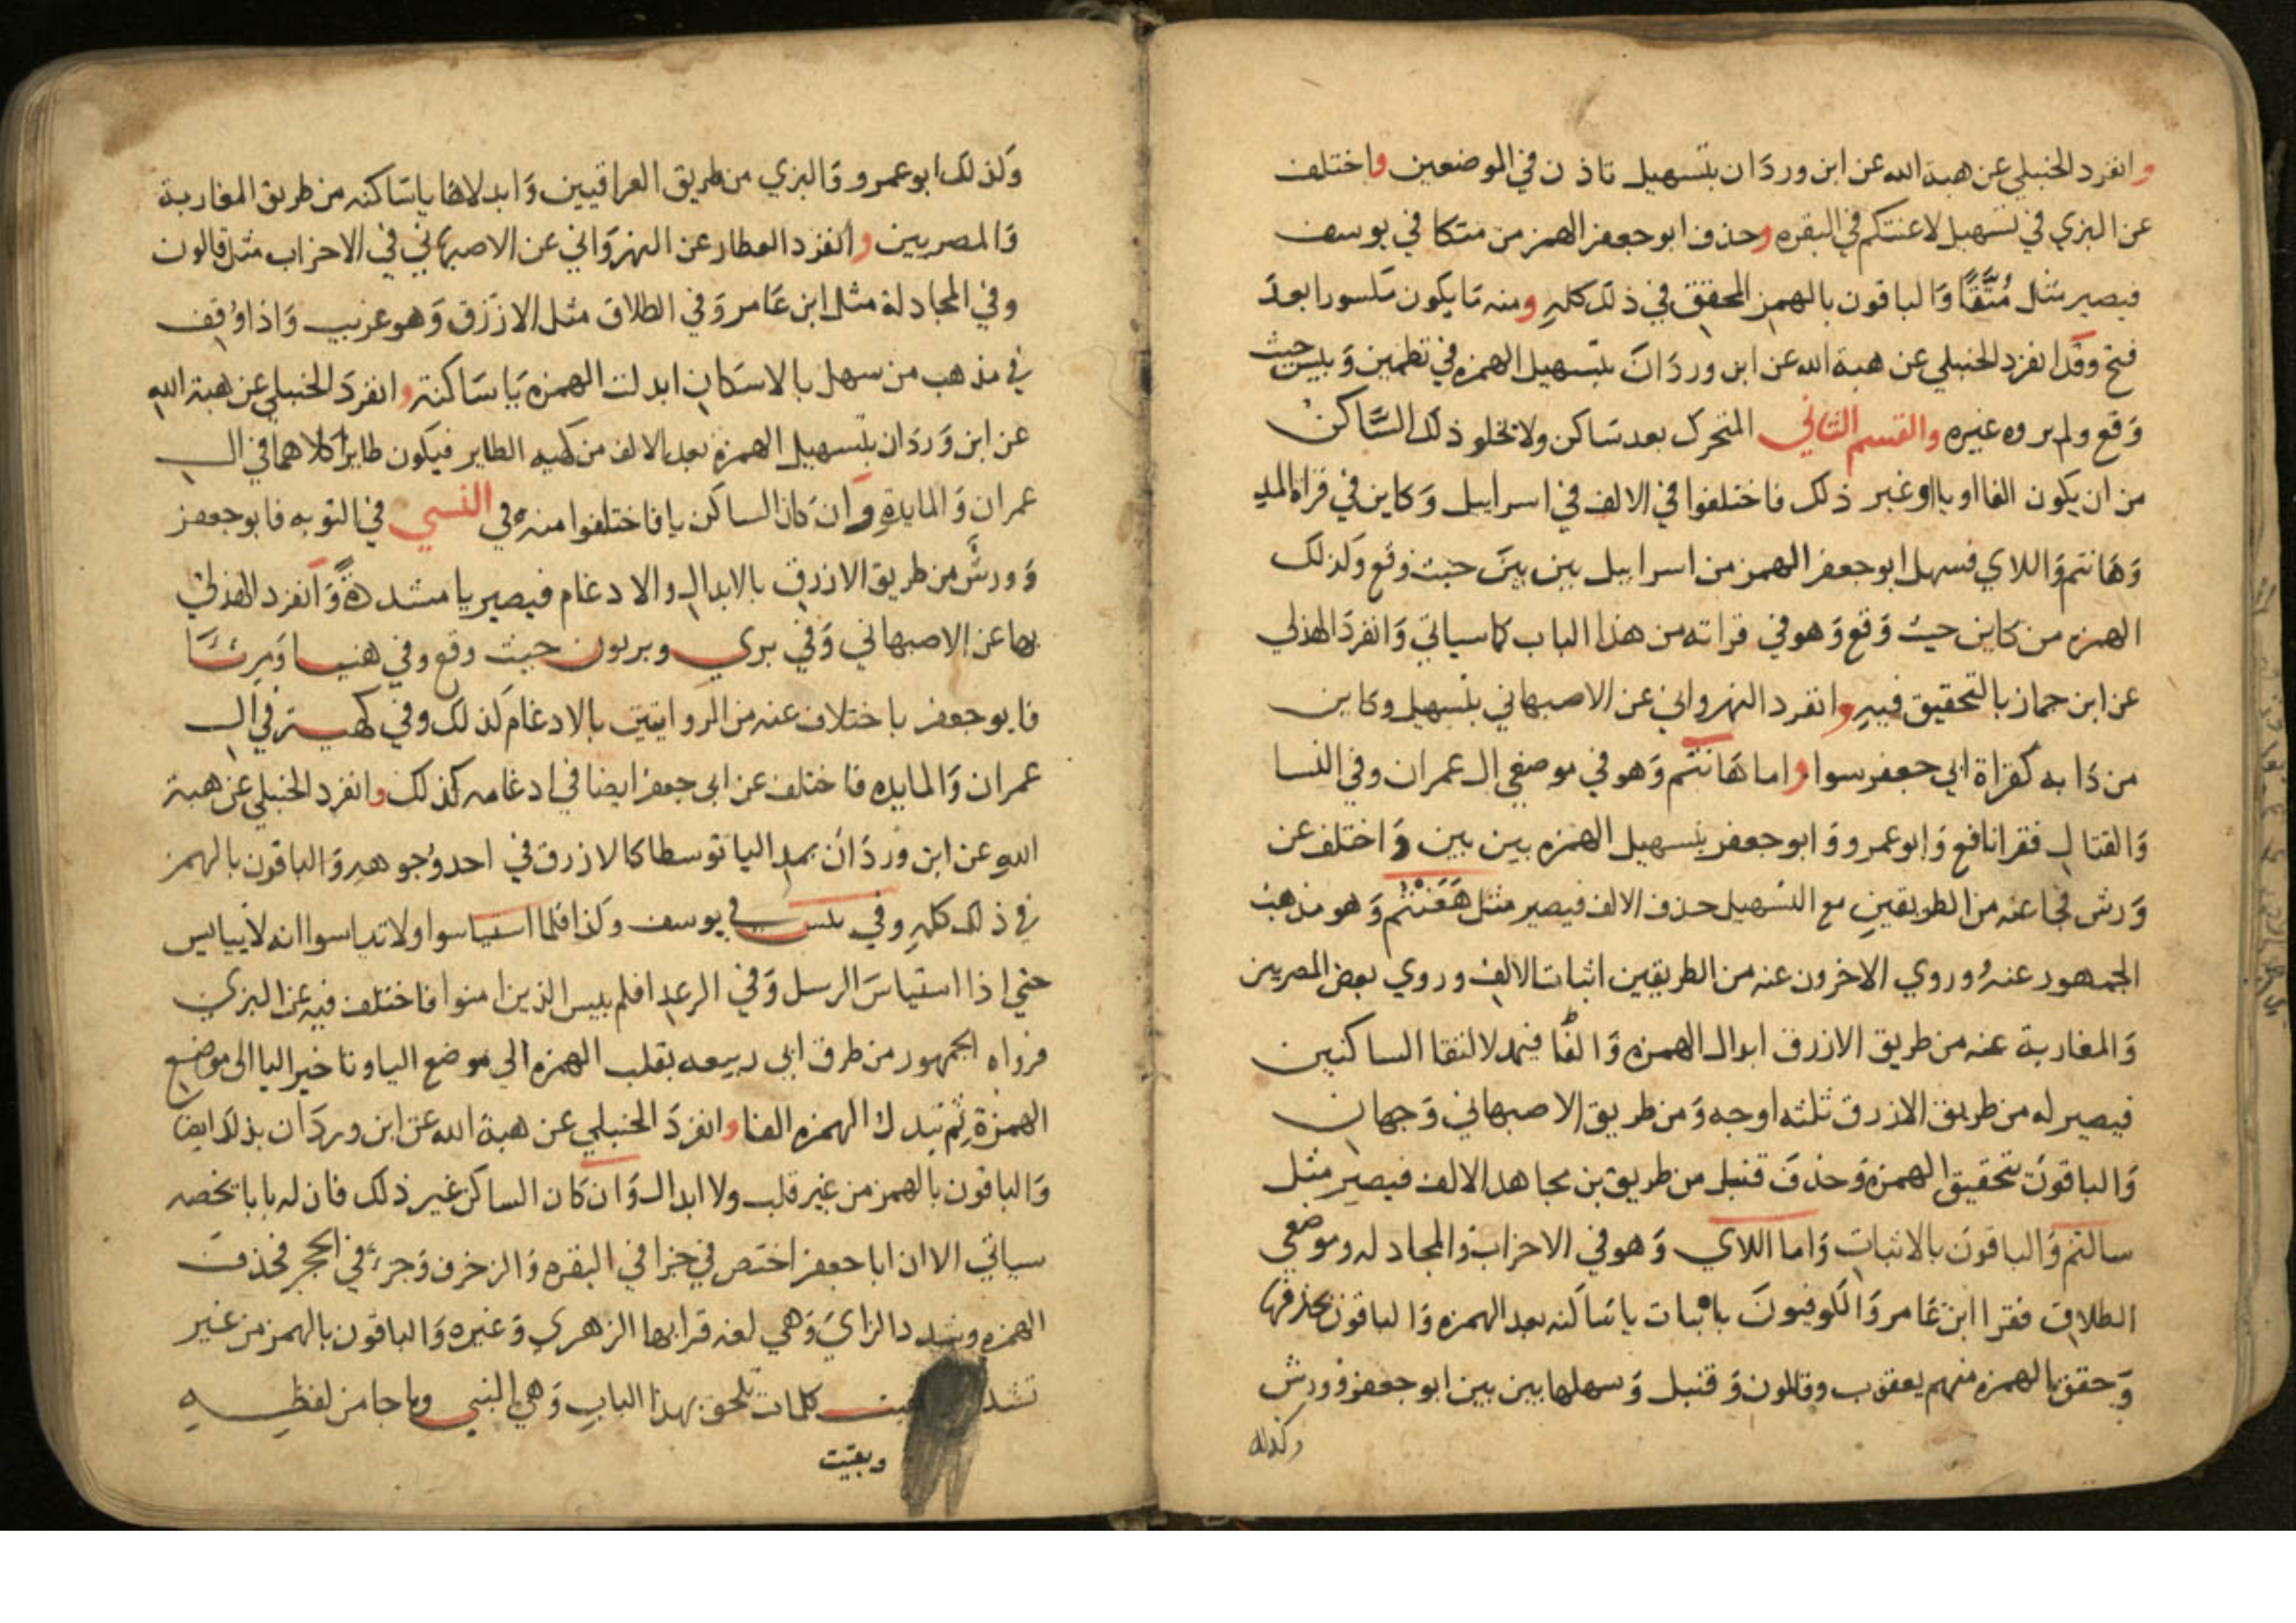 وانفرد الحنبلي عن هبة الله عن ابن وردَان بتسهيل تاذن في الموضعين واختلف
عن البزي في تسهيل لاعنتكم في البقره وحذف ابو جعفر الهمز من متكا في يوسف
فيصير مثل مُتَّقًا وَالباقون بالهمز المحقق في ذلك كلهِ ومنه مَا يكون مكسورا بعدَ
فتح وقَد انفرد الحنبلي عن هبة الله عن ابن وردَانَ بتسهيل الهمزه في تطمين وَيئيس حيث
وَقع ولم يروه غيره والقسم الثاني المتحرك بعد سَاكن ولا يخلو ذلك السَّاكن
من ان يكون الفا او يا او غير ذلك فاختلفوا في الالف في اسراييل وَكاين في قراة المد
وَهَانتم وَاللاي فسهل ابو جعفر الهمز من اسراييل بين بينَ حيث وَقع وَلذلك
الهمزه من كاين حيث وَقع وَهو في قراته من هذا الباب كما سياتي وَانفردَ الهذلي
عن ابن جماز بالتحقيق فيهِ وانفرد النهرواني عن الاصبهاني بتسهيل وكاين
من دَابه كقراة ابي جعفر سوا واما هَانتم وَهو في موضعي ال عمران وفي النسا
وَالقتال فقرا نافع وَابو عمرو وَابو جعفر بتسهيل الهمزه بين بين وَاختلف عن
وَرش فجا عنه من الطريقين مع التسهيل حذف الالف فيصير مثل هَعَنْتُم وَهو مذهب
الجمهور عنهُ وروي الاخرون عنه من الطريقين اثبات الالف وروي بعض المصريين
وَالمغاربة عنه من طريق الازرق ابدال الهمزه وَالفًا فيمد لالتقا الساكنين
فيصير له من طريق الازرق ثلثه اوجه وَمن طريق الاصبهاني وَجهان
وَالباقونَ بتحقيق الهمزه وَحذفَ قنبل من طريق بن مجاهد الالف فيصير مثل
سالتم وَالباقونَ بالاثبات وَاما اللاي وَهو في الاحزاب وَالمجادله وموضعي
الطلاق فقرا ابن عَامر وَالكوفيونَ باثبات يا سَاكنه بعد الهمزه وَالباقون بحذفها
وَحقق الهمزه منهم يعقوب وقالون وَقنبل وَسهلها بين بين ابو جعفر وَورش
وكذلك
وَلذلك ابو عمرو وَالبزي من طريق العراقيين وَابدلاها يا سَاكنه من طريق المغاربة
وَالمصريين وانفرد العطار عن النهرَوَاني عن الاصبهاني في الاحزاب مثل قالون
وفي المجادلة مثل ابن عَامر وَفي الطلاق مثل الازرَق وَهو غريب وَاذا وُقِف
في مذهب من سهل بالاسكان ابدلت الهمزه يَا سَاكنة وانفردَ الحنبلي عن هبة الله
عن ابن وَردَان بتسهيل الهمزه بعد الالف من كهيه الطاير فيكون طايرًا كلاهما في ال
عمران وَالمايدةِ وَان كان الساكن يا فاختلفوا منه في النسي في التوبه فابو جعفر
وَورشٌ من طريق الازرق بالابدال والادغام فيصير يا مشددةً وَانفرد الهذلي
بها عن الاصبهاني وَفي بري وبريون حيث وقع وفي هنيا وَمريَّا
فابو جعفر باختلاف عنه من الروايتين بالادغام كذلك وفي كهيه في ال
عمران وَالمايده فاختلف عن ابي جعفر ايضا في ادغامه كذلك وانفرد الحنبلي عن هبة
الله عن ابن وردَان بمد اليا توسطا كالازرق في احد وُجوههِ وَالباقون بالهمز
في ذلك كلهِ وفي يئس في يوسف وكذا فلما استياسوا ولا تياسوا انه لا ييايس
حتي اذا استياسَ الرسل وَفي الرعد افلم ييس الذين امنوا فاختلف فيه عن البزي
فرواه الجمهور من طرق ابي ربيعه بقلب الهمزه الي موضع اليا وتاخير اليا الي موضع
الهمزةِ ثم تبدل الهمزه الفا وانفردَ الحنبلي عن هبة الله عن ابن وردَان بذلك ايضا
وَالباقون بالهمز من غير قلب ولا ابدال وَان كان الساكن غير ذلك فان له بابا يخصه
سياتي الا ان ابا جعفر اختص في جزا في البقره وَالزخرف وَجزءٌ في الحجر فحذفَ
الهمزه وشدد الزايَ وَهي لغه قرا بها الزهري وَغيره وَالباقون بالهمز من غير
كلمات تلحق بهذا البابِ وَهي النبي وما جا من لفظِهِ
وبقيت